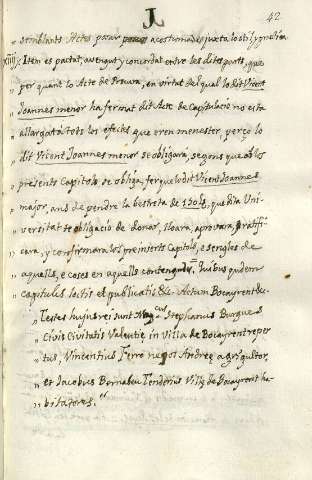 42
„ semblants Actes posar acostumades juxta lo stil, y pratica
xiiij „ Item es pactat, avengut y concordat entre les dites parts, que
„ per quant lo Acte de Procura, en virtut del qual lo dit Vicent
„ Joannes menor ha fermat dit Acte de Capitulacio no esta
„ allargat a tots los efectes que eren menester, perço lo
„ dit Vicent Joannes menor se obligará, segons que ab los
„ presents Capitols se obliga, fer que lo dit Vicent Joannes
„ major, ans de pendre la bestreta de que dita Uni-
„ versitat te obligacio de donar, lloara, aprovara, ratifi-
„ cara, y confirmara los preinserts Capitols, e sengles de
„ aquells, e coses en aquells contengudes = Quibus quidem
„ capitulis lectis et publicatis &c. Actum Bocayrent &c.
„ Testes hujus rei sunt Mag.cus Stephanus Burgues
„ Civis Civitatis Valentie in Villa de Bocayrent reper-
„ tus, Vincentius Ferre nepos Andree agricultor,
„ et Jacobus Bernabeu Tenderius Ville de Bocayrent ha-
„ bitatores.